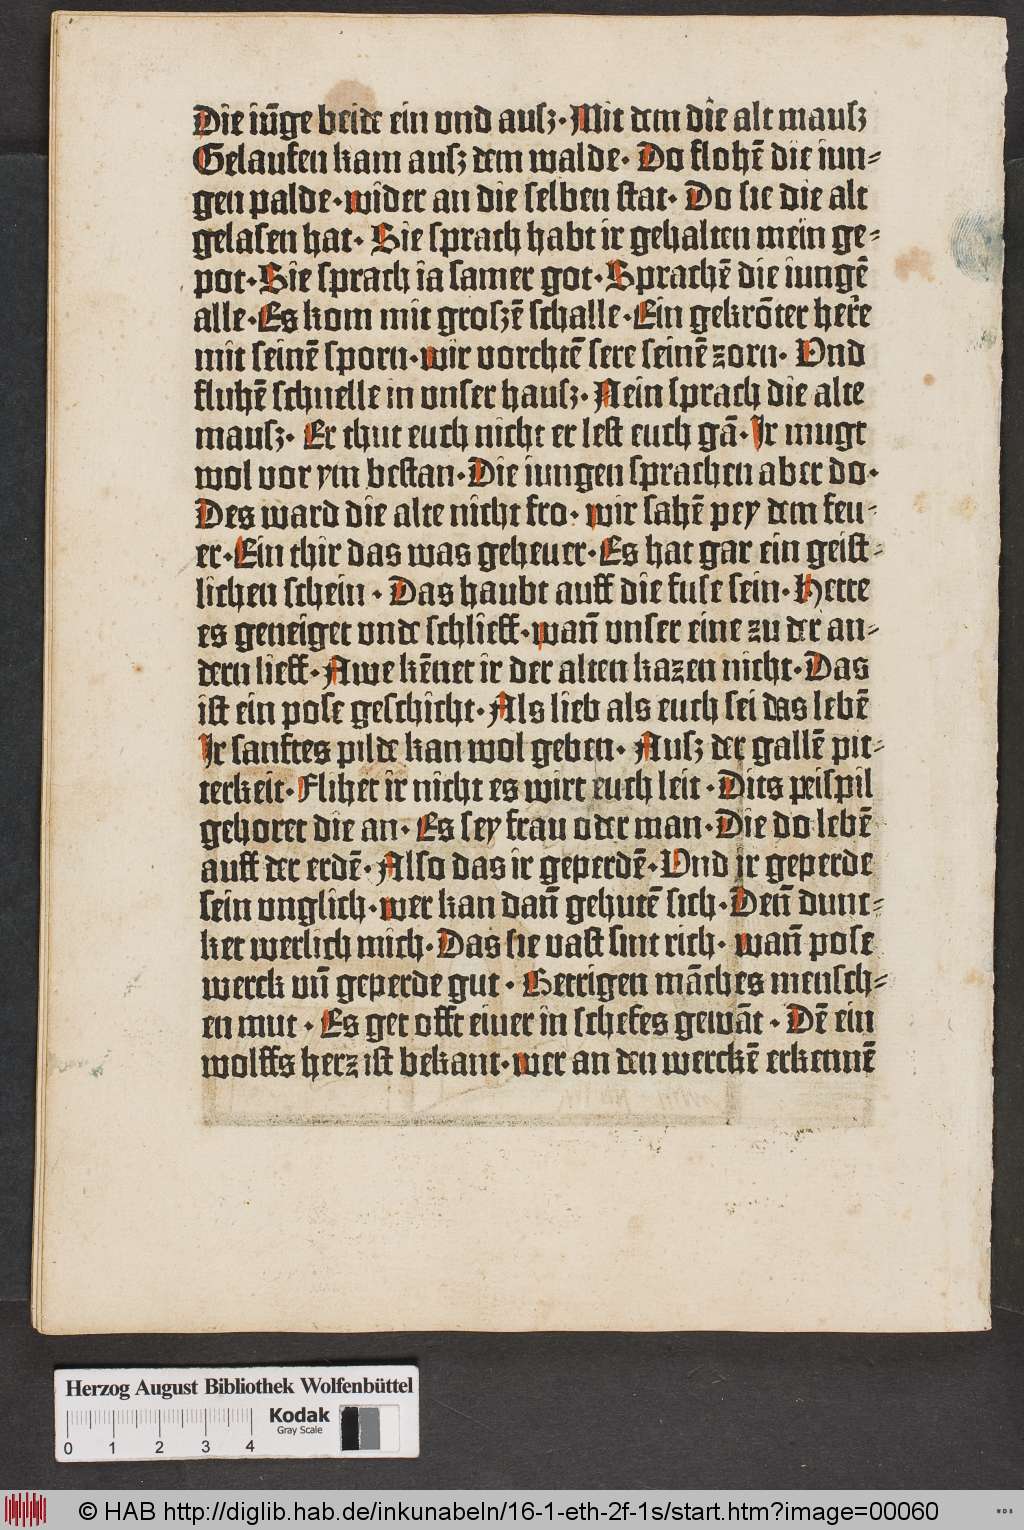 Die iūge beide ein vnd auſz· Mit dem die alt mauſz
Gelaufen kam auſz dem walde· Do flohē die iun⸗
gen palde· wider an die ſelben ſtat· Do ſie die alt
gelaſen hat· Sie ſprach habt ir gehalten mein ge⸗
pot· Sie ſprach ia ſamer got· Sprachē die iungē
alle· Es kom mit groſzē ſchalle· Ein gekrōter here
mit ſeinē ſporn· wir vorchtē ſere ſeinē zorn· Vnd
fluhē ſchnelle in vnſer hauſz· Nein ſprach die alte
mauſz· Er thut euch nicht er leſt euch gā· Ir mugt
wol vor ym beſtan· Die iungen ſprachen aber do·
Des ward die alte nicht fro· wir ſahē pey dem feu⸗
er· Ein thir das was geheuer· Es hat gar ein geiſt⸗
lichen ſchein· Das haubt auff die fuſe ſein· Hette
es geneiget vnde ſchlieff· wan̄ vnſer eine zu der an⸗
dern lieff· Awe kēnet ir der alten kazen nicht· Das
iſt ein poſe geſchicht· Als lieb als euch ſei das lebē
Ir ſanftes pilde kan wol geben· Auſz der gallē pit⸗
terkeit· Flihet ir nicht es wirt euch leit· Dits peiſpil
gehoret die an· Es ſey frau oder man· Die do lebē
auff der erdē· Alſo das ir geperdē· Vnd ir geperde
ſein vnglich· wer kan dan̄ gehutē ſich· Den̄ dunc⸗
ket werlich mich· Das ſie vaſt ſint rich· wan̄ poſe
werck vn̄ geperde gut· Betrigen māches menſch⸗
en mut· Es get offt einer in ſchefes gewāt· Dē ein
wolffs herz iſt bekant· wer an den werckē erkennē
Herzog August Bibliothek Wolfenbüttel
0 1 2 3 4
Kodak
Gray Scale
© HAB http://diglib.hab.de/inkunabeln/16-1-eth-2f-1s/start.htm?image=00060